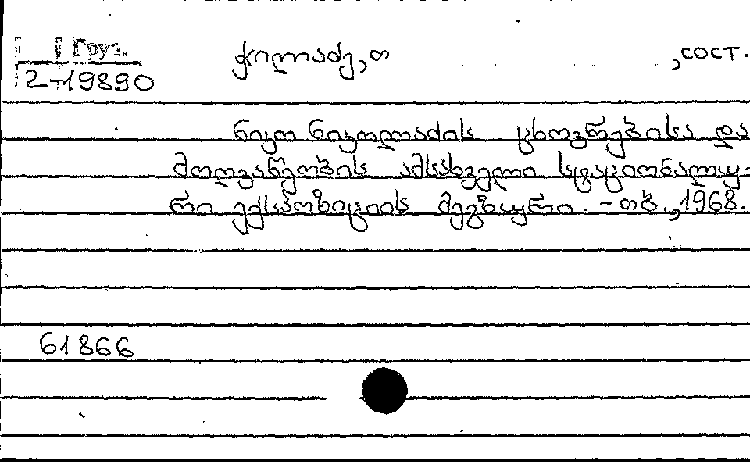 Груз.
2-19890
ჭილაძე, თ , сост.
ნიკო ნიკოლაძის ცხოვრებისა და
მოღვაწეობის ამსახველი სტაციონალუ-
რი ექსპოზიციის მეგზური. - თბ., 1968.
61866